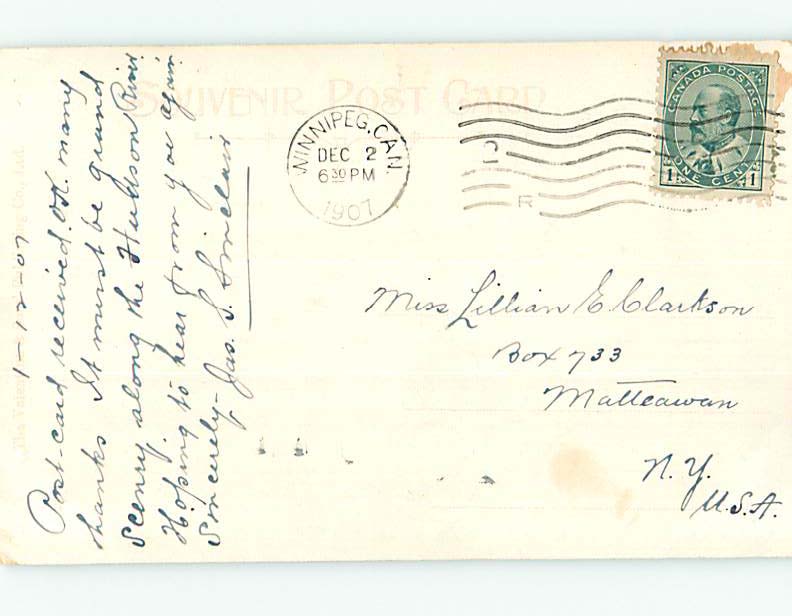 SOUVENIR POST CARD
WINNIPEG, CAN.
DEC 2
6 30 PM
1907
R
CANADA POSTAGE
1 1
ONE CENT
1-12-07
Post-card received O.K. many
thanks It must be grand
Scenry along the Hudson River
Hoping to hear from you again
Sincerely- Jas. S. Sinclair
Miss Lillian E. Clarkson
Box 733
Matteawan
N.Y.
U.S.A.